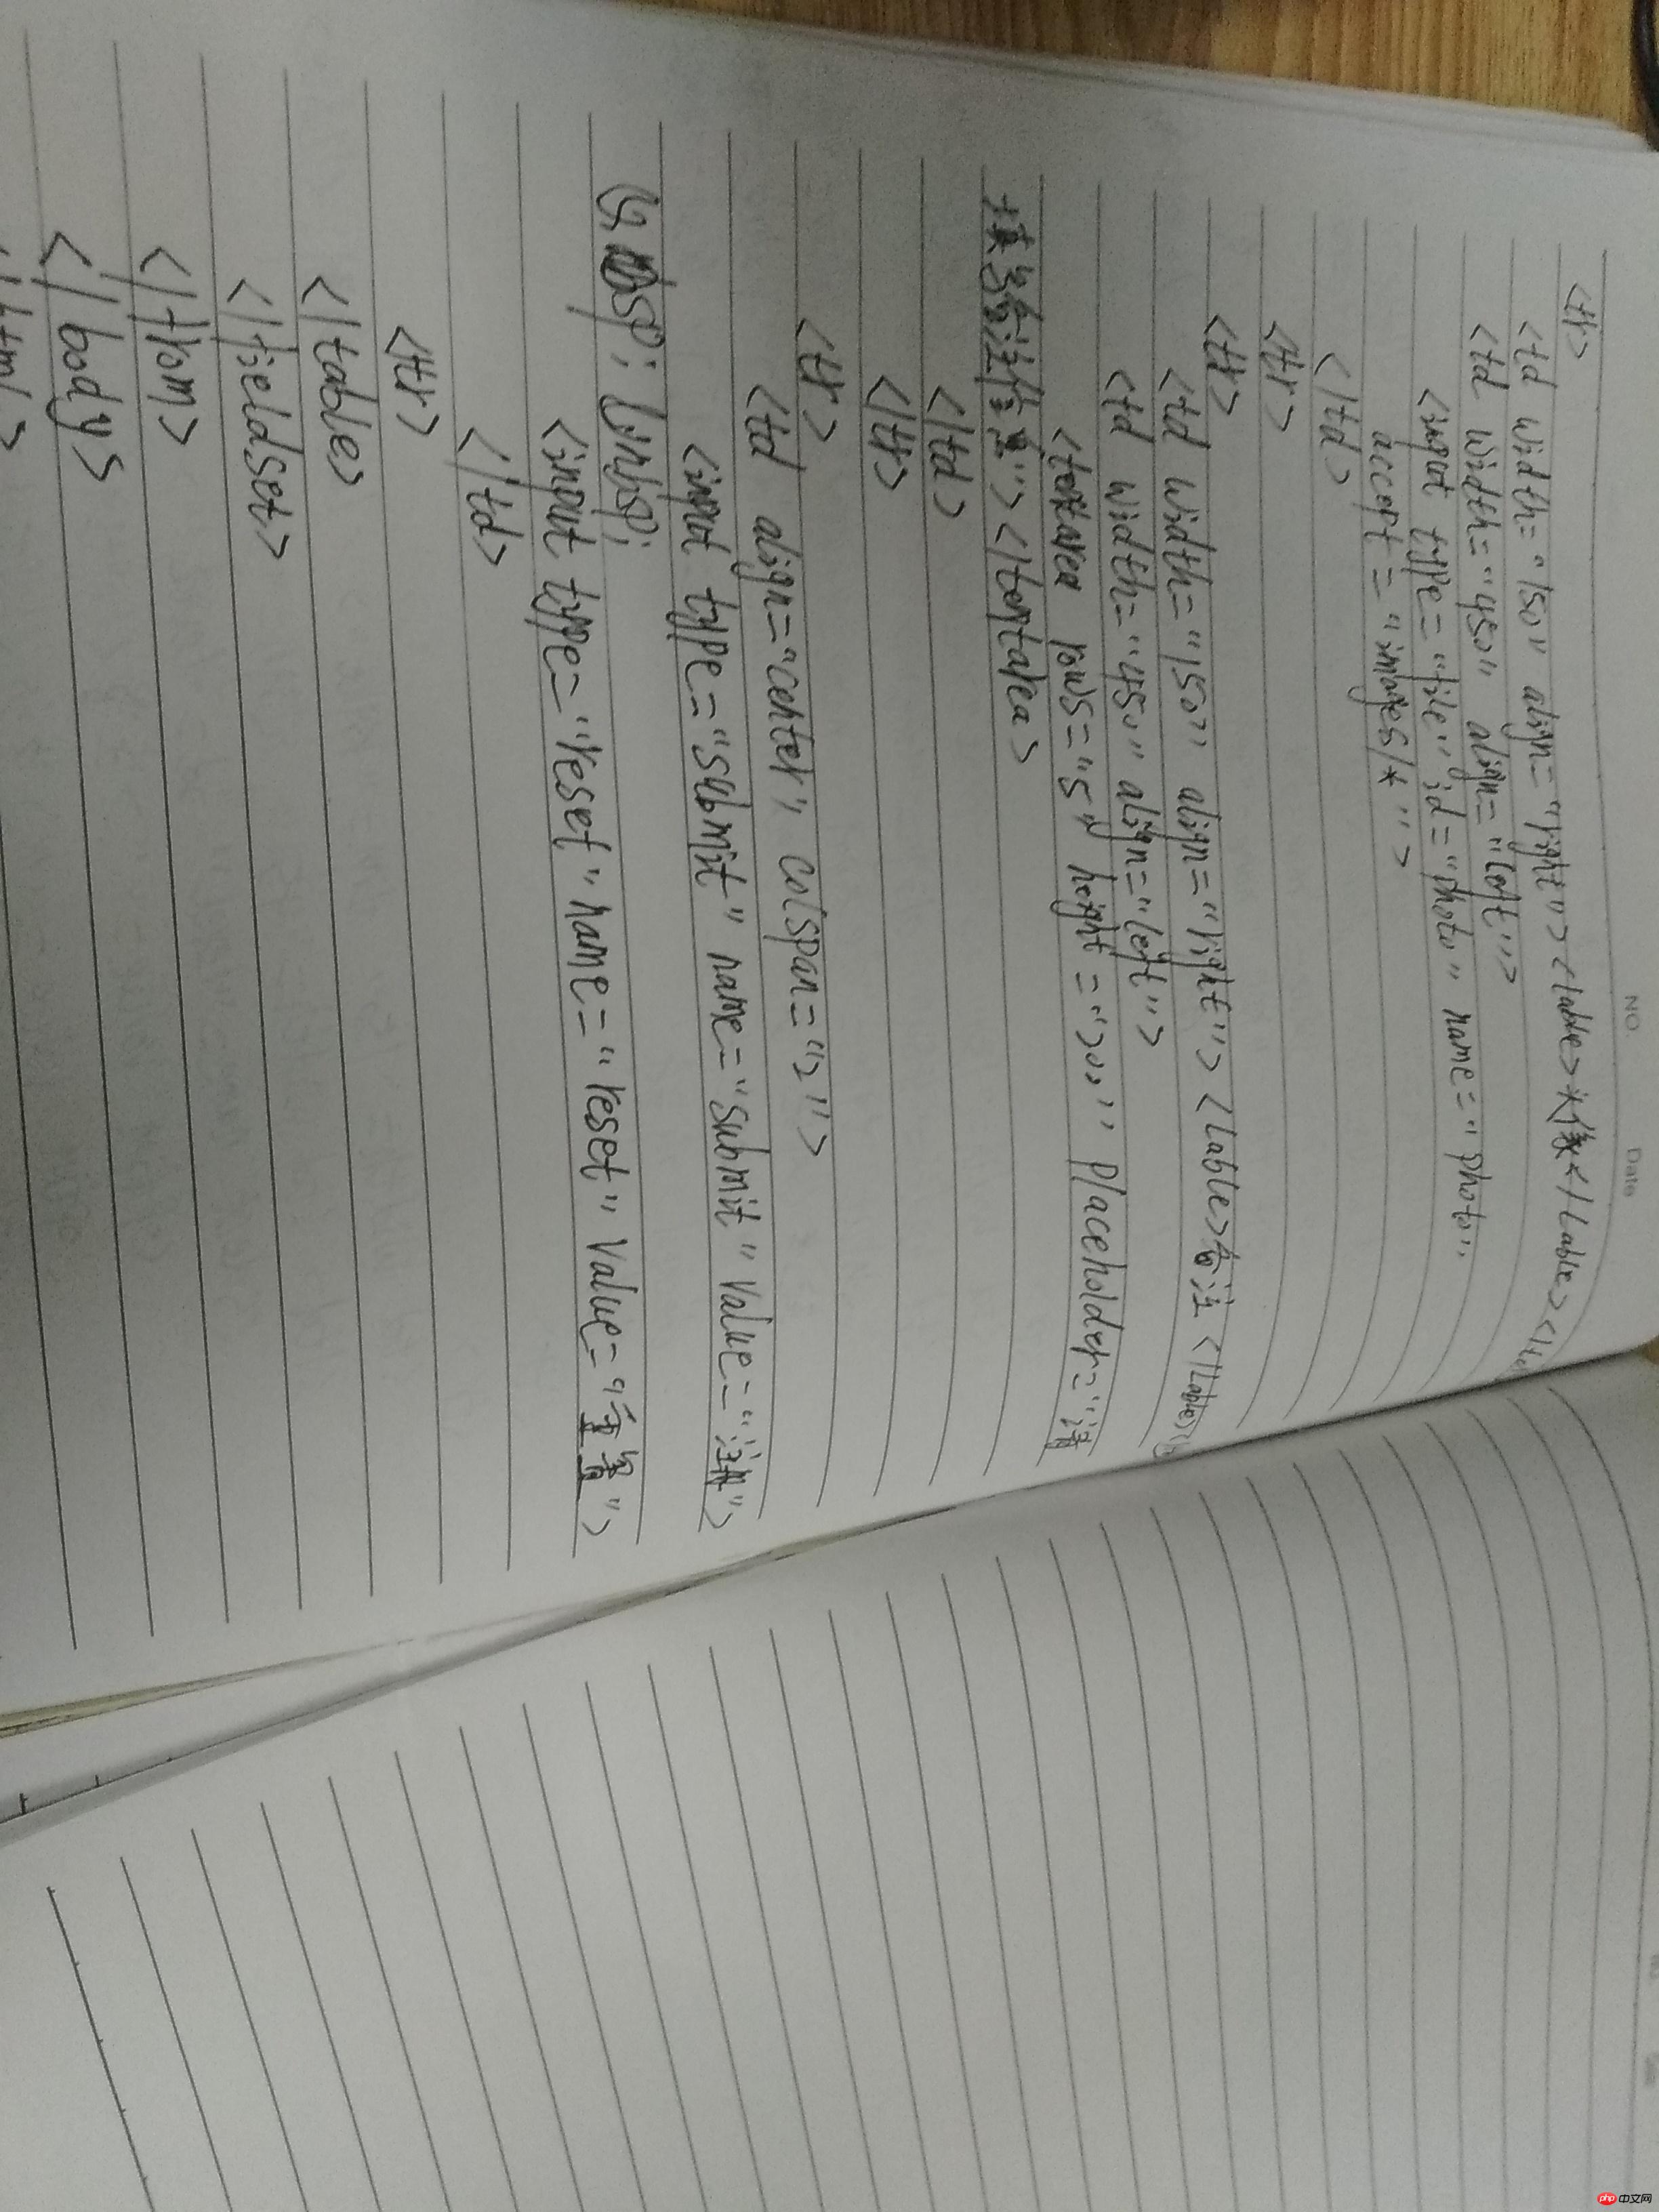 NO.
Date
<tr>
<td width="150" align="right"><lable>头像</Lable></td
<td width="450" align="left">
<input type="file" id="photo" name="photo"
accept="images/*">
</td>
<tr>
<tr>
<td width="150" align="right"><Lable>备注</Lable>
<td width="450" align="left">
<textarea rows="5" height="200" placeholder="请
填写备注信息"></textarea>
</td>
</tr>
<tr>
<td align="center" colspan="2">
<input type="submit" name="submit" value="注册">
&nbsp;
<input type="reset" name="reset" value="重置">
</td>
<tr>
</table>
</fieldset>
</from>
</body>
</html>
php 中文网